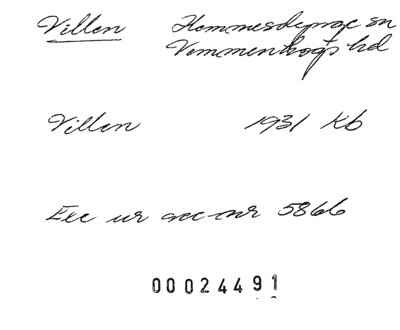 Villen Hemmesdynge sn
Vemmenhögs hd
Villen 1931 Kb
Exc ur acc-nr 5866
00024491